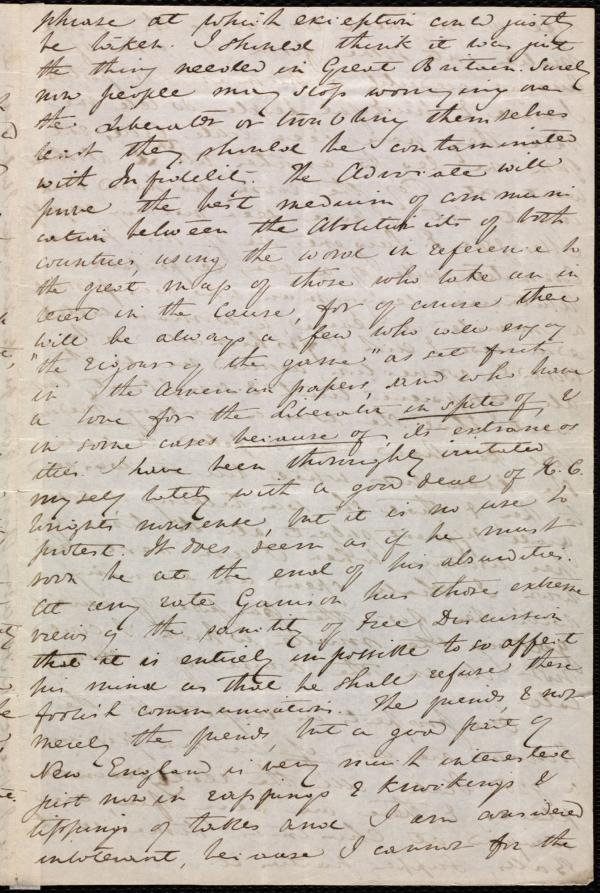 phrase at which exception could justly
be taken. I should think it was just
the thing needed in Great Britain. Surely
now people may stop worrying over
the Liberator or troubling themselves
lest they should be contaminated
with Infidelity. The Advocate will
prove the best medium of communi
cation between the Abolitionists of both
countries, using the word in reference to
the great mass of those who take an in
terest in the cause, for of course there
will be always a few who will enjoy
"the rigour of the game" as set forth
in the American papers, and who have
a love for the Liberator in spite of, &
in some cases because of, its extraneos
ities. I have been thoroughly irritated
myself lately with a good deal of H. C.
Wright's nonsense, but it is no use to
protest. It does seem as if he must
soon be at the end of his absurdities.
At any rate Garrison has those extreme
views of the sanctity of Free Discussion
that it is entirely impossible to so affect
his mind as that he shall refuse these
foolish communications. The friends, & not
merely the friends, but a good part of
New England is very much interested
just now in rappings & knockings &
tippings of tables and I am considered
intolerant, because I cannot for the